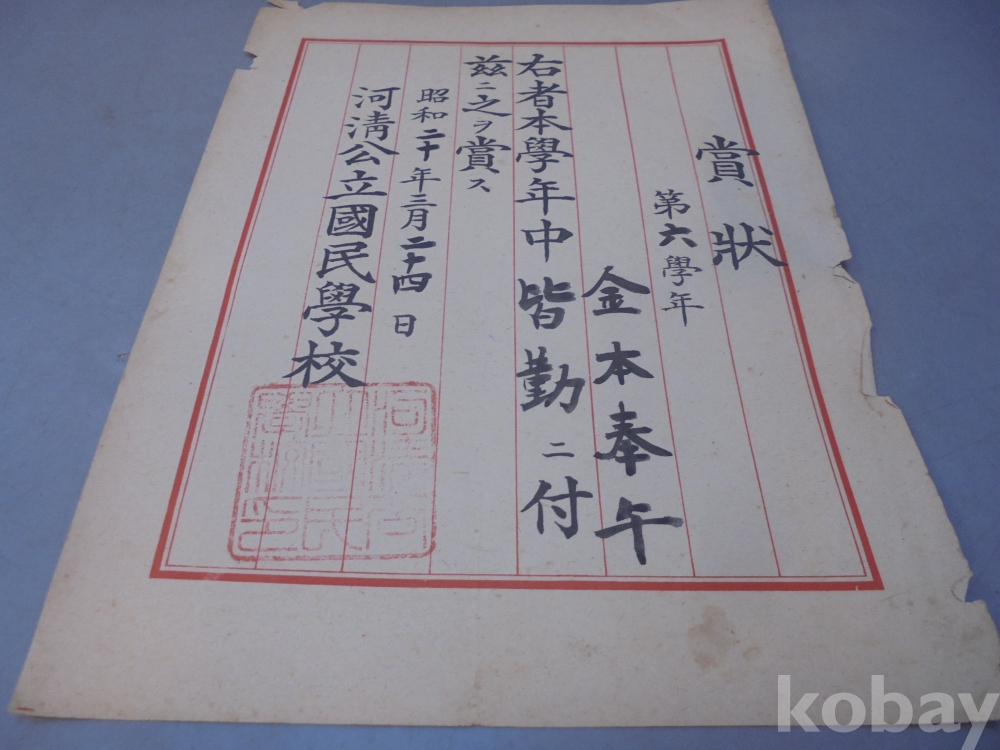 賞狀
第六學年
金本奉午
右者本學年中皆勤ニ付
玆ニ之ヲ賞ス
昭和二十年三月二十四日
河淸公立國民學校
kobay